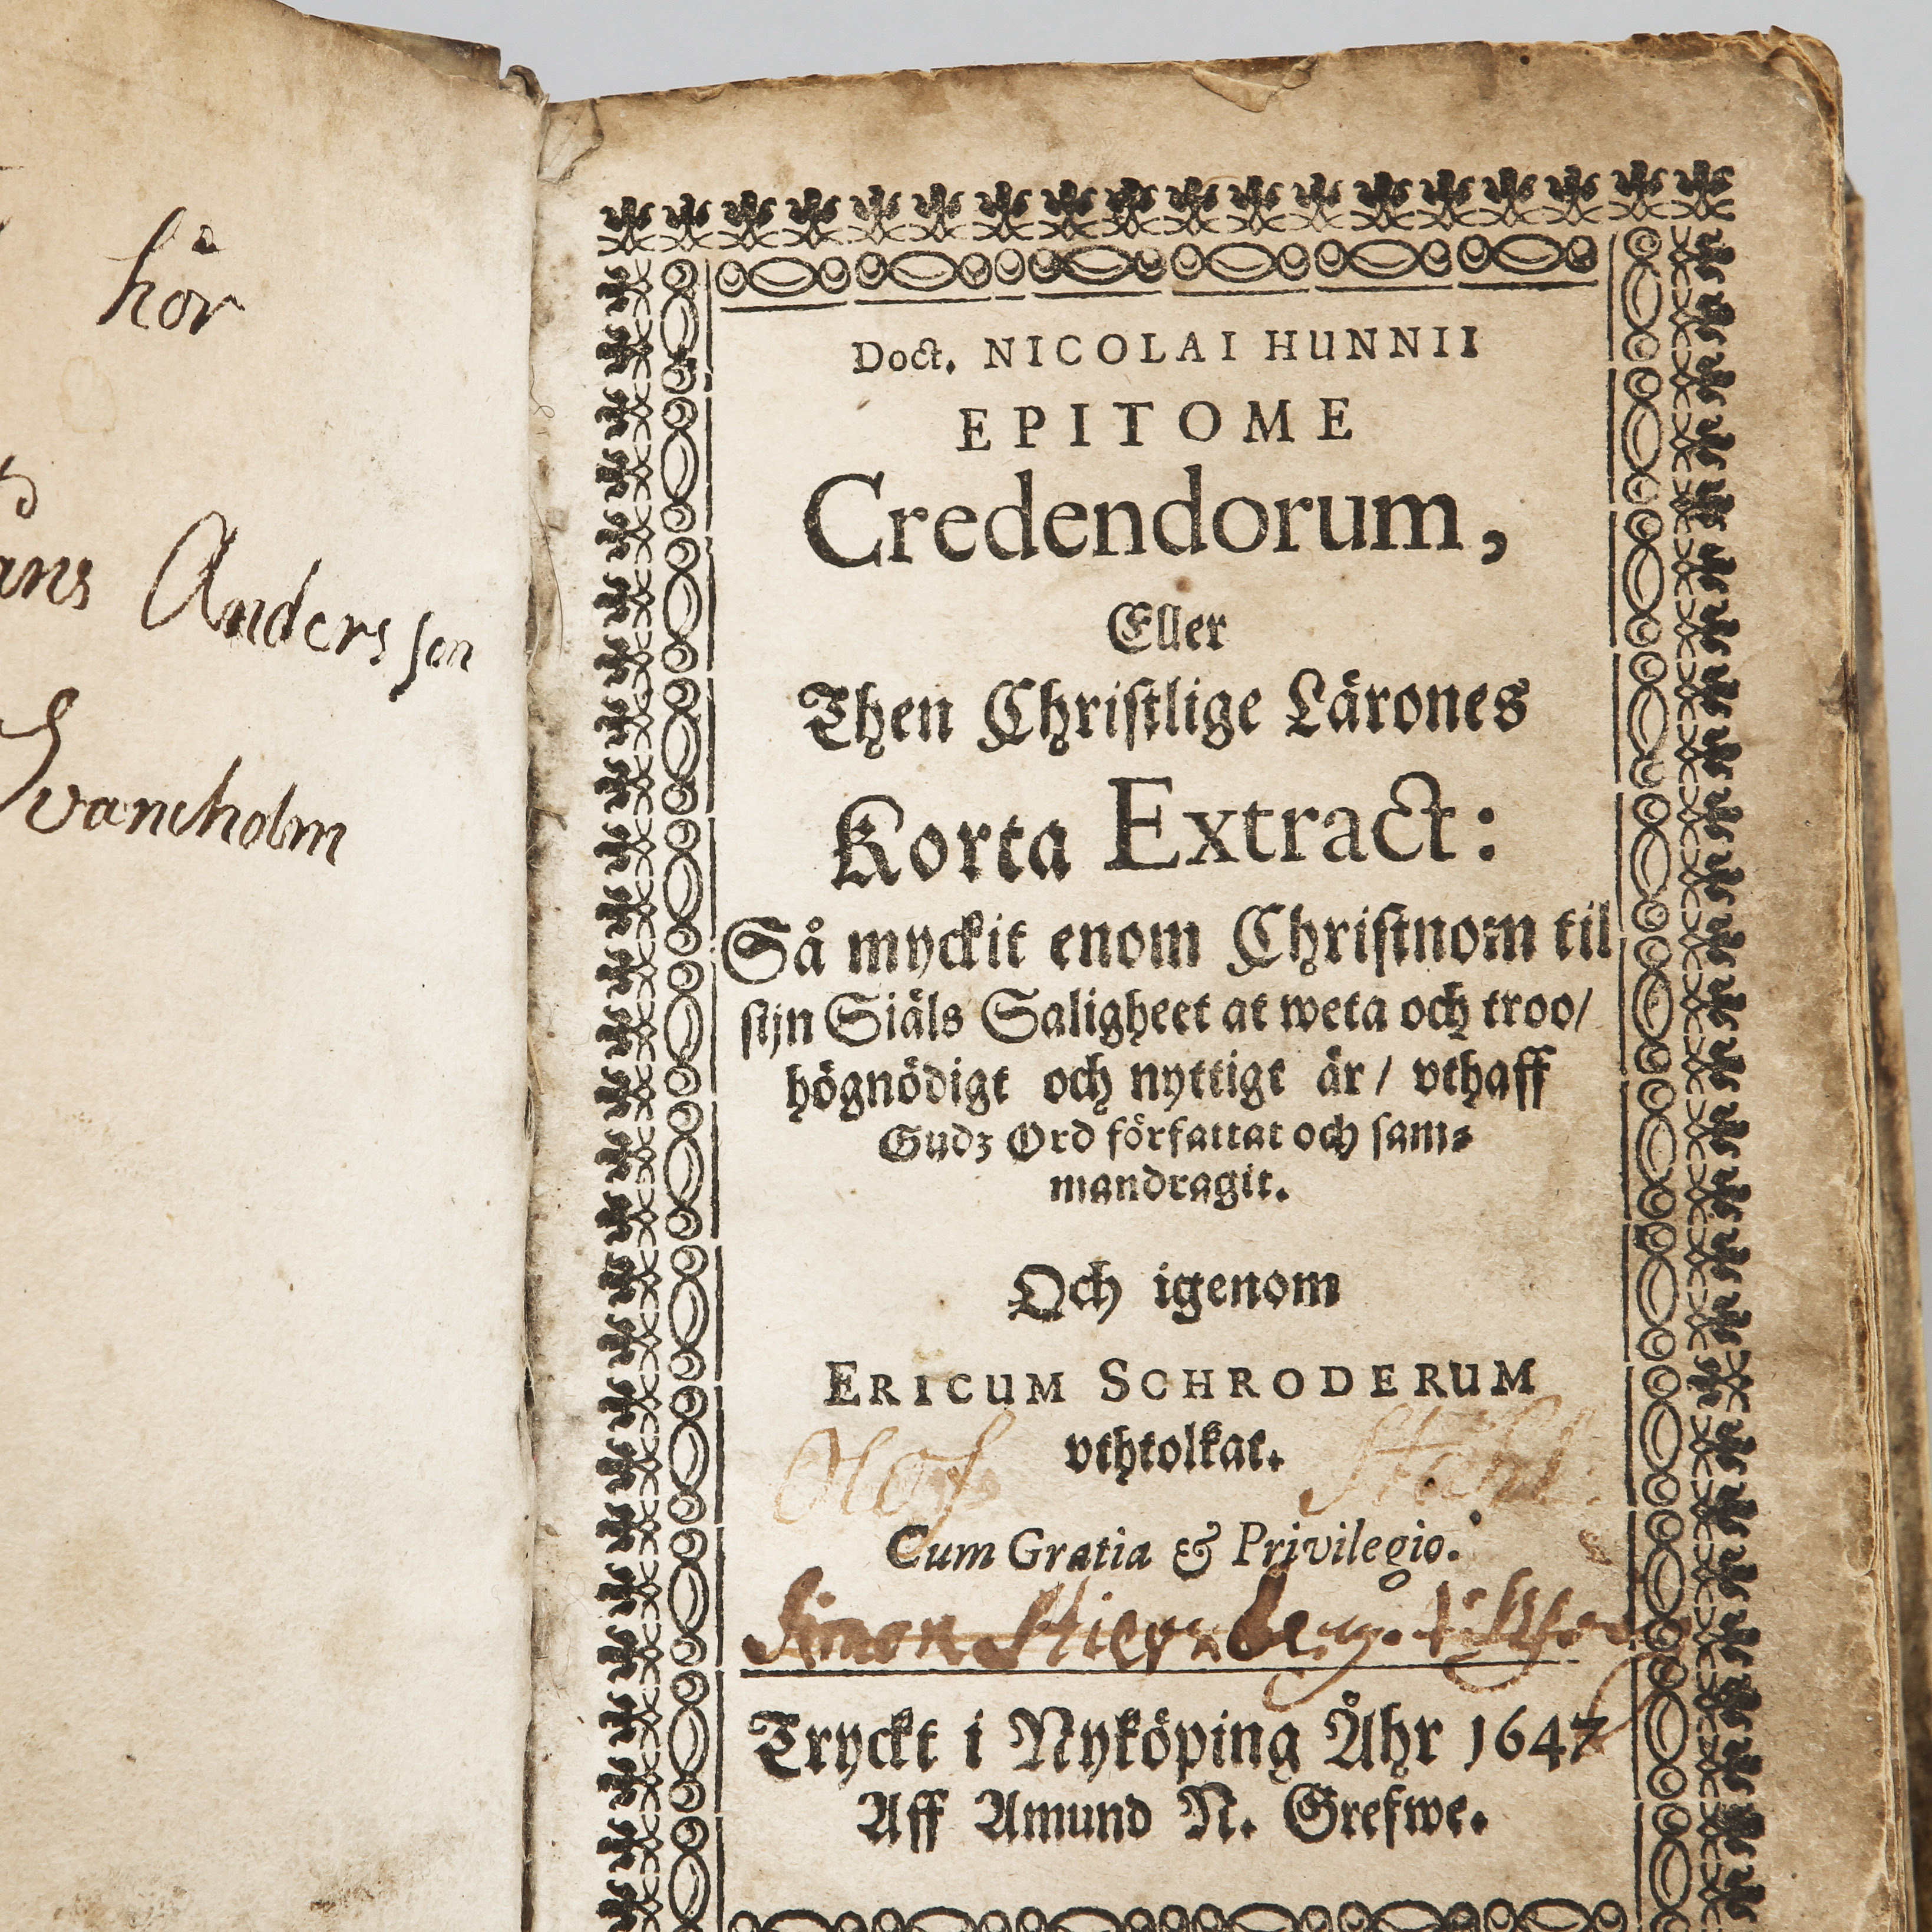 hör
Andersson
Svaneholm
Doct. NICOLAI HUNNII
EPITOME
Credendorum,
Eller
Then Christlige Lärones
Korta Extract:
Så myckit enom Christnom til
sijn Siäls Saligheet at weta och troo/
högnödigt och nyttigt är/ vthaff
Gudz Ord författat och sam-
mandragit.
Och igenom
ERICUM SCHRODERUM
vthtolkat.
Olof Ståhl.
Cum Gratia & Privilegio.
Simon Stiernberg.
Tryckt i Nyköping Åhr 1647
Aff Amund N. Grefwe.